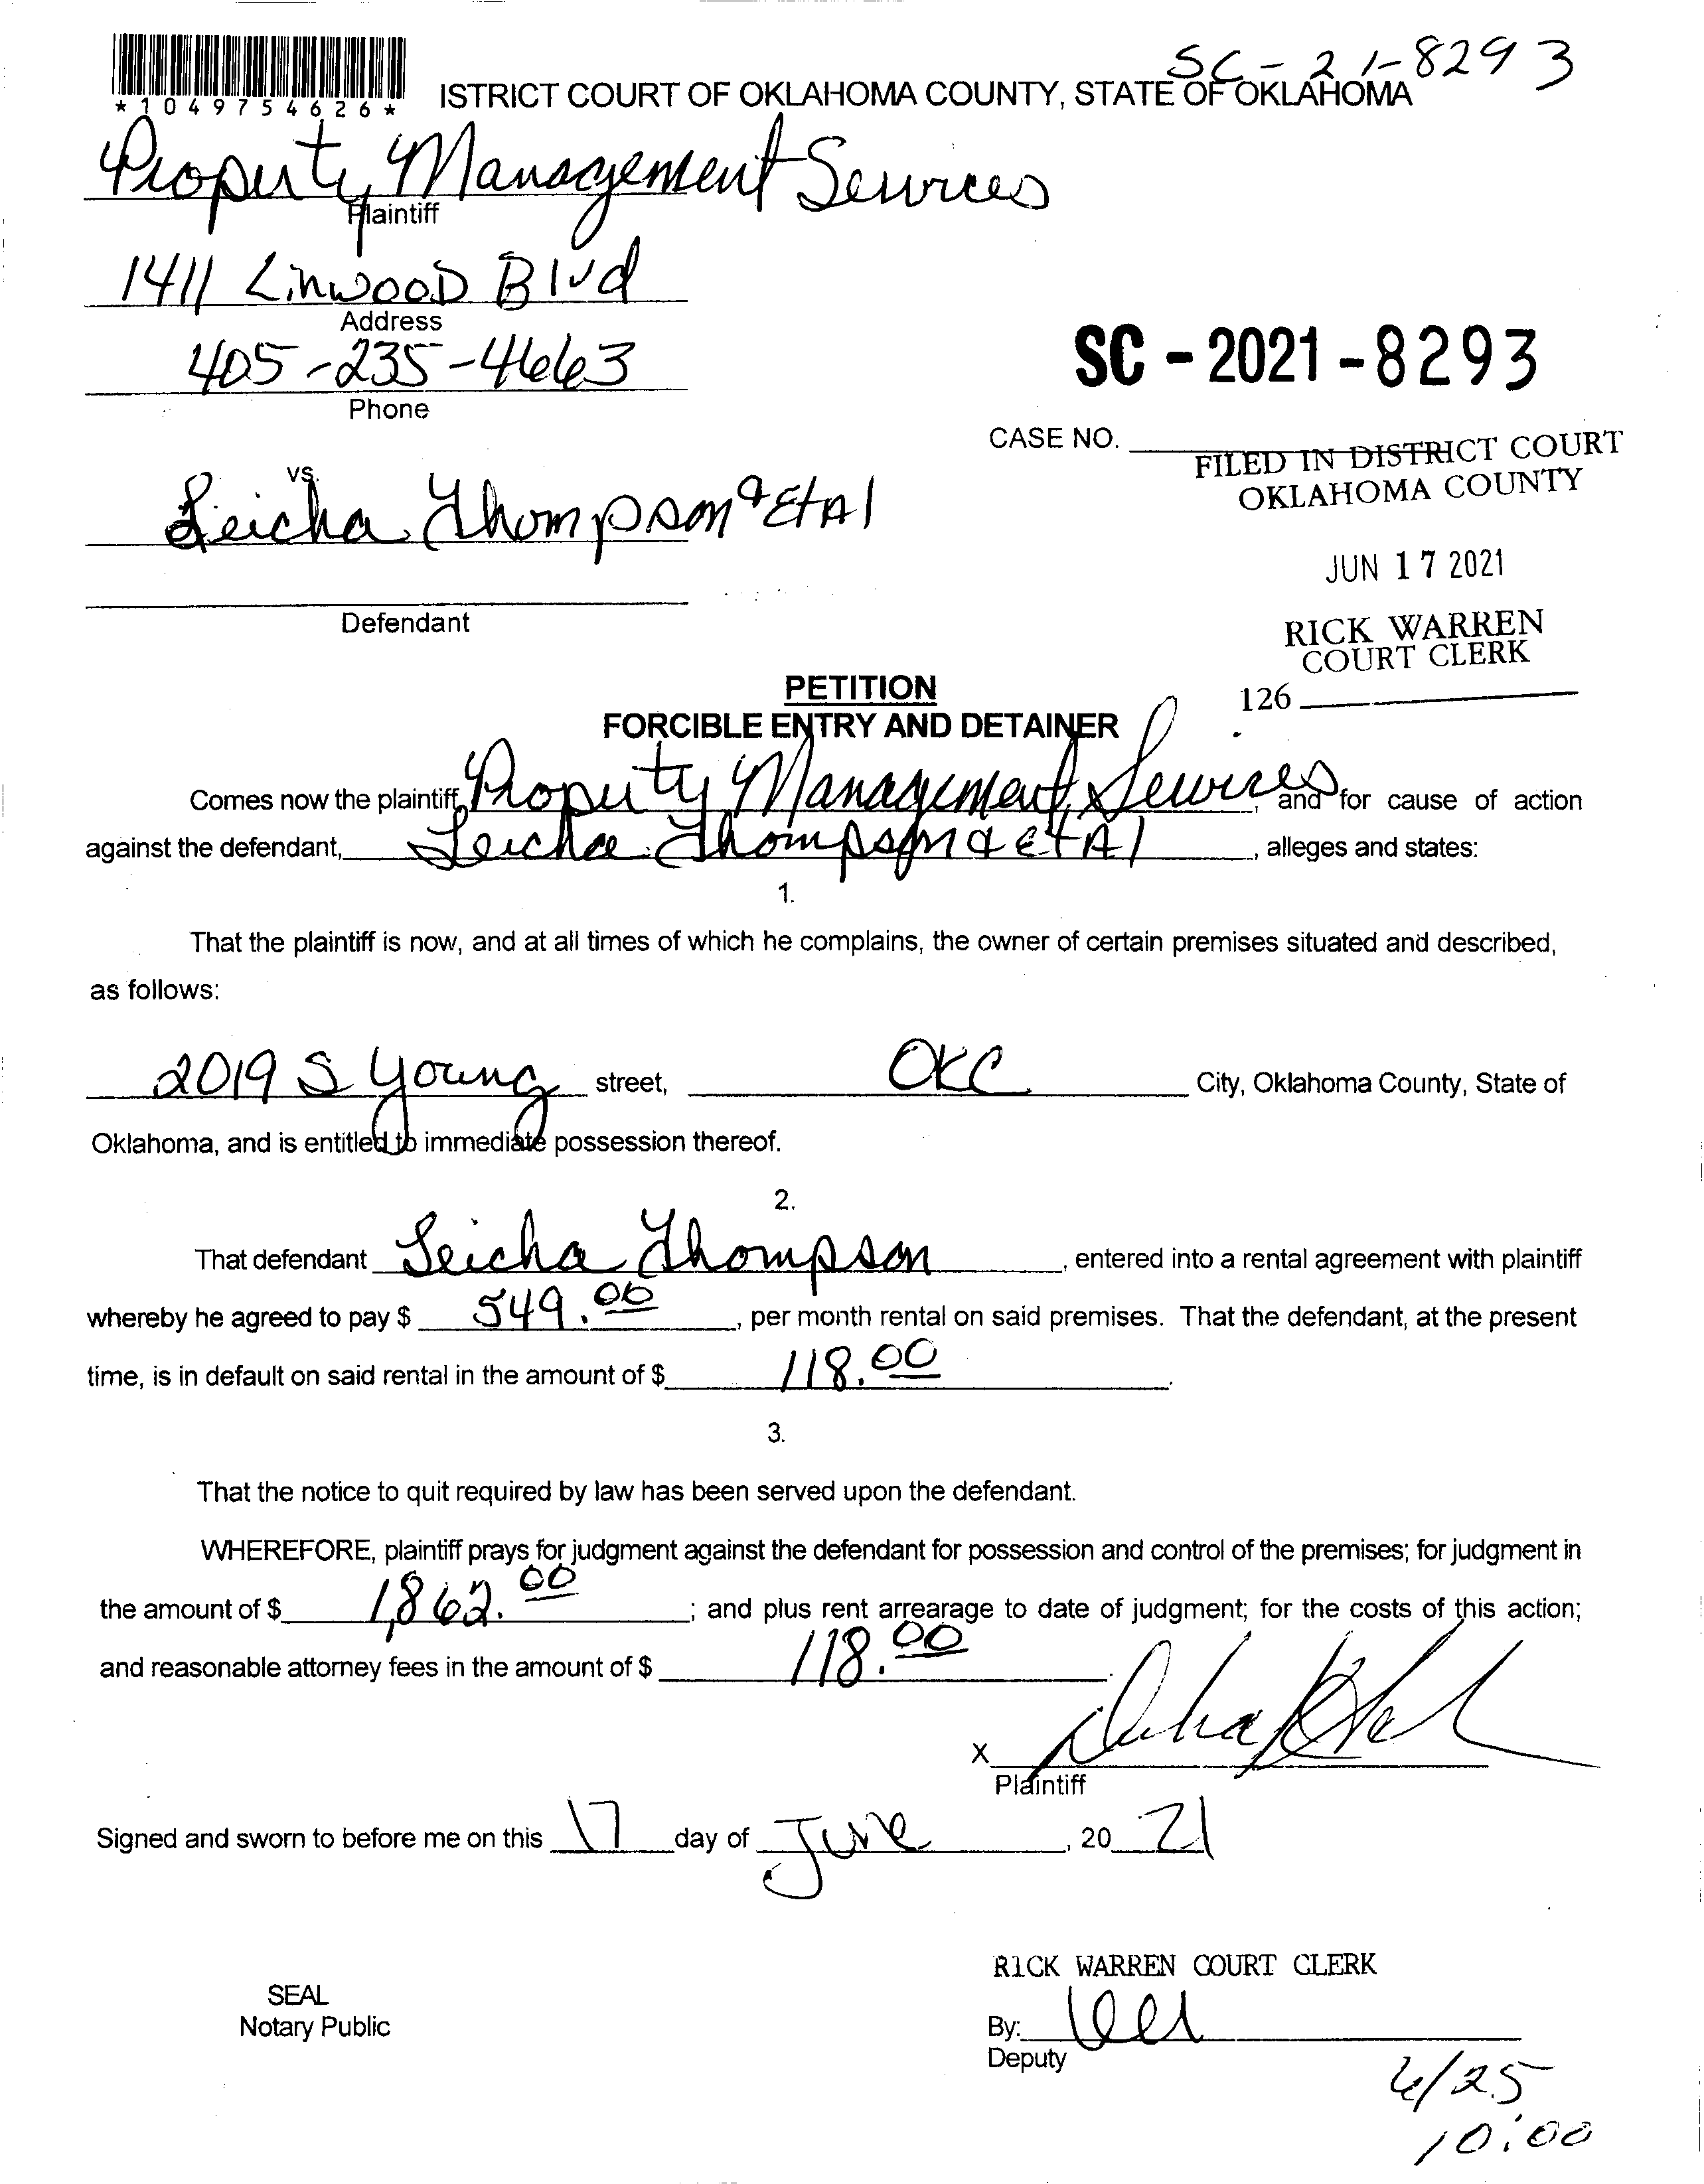 SC-21-8293
*1049754626*
ISTRICT COURT OF OKLAHOMA COUNTY, STATE OF OKLAHOMA
Property Management Services
Plaintiff
1411 Linwood Blvd
Address
405-235-4663
Phone
SC-2021-8293
CASE NO.
FILED IN DISTRICT COURT
OKLAHOMA COUNTY
vs.
Leicha Thompson & EtAl
JUN 17 2021
Defendant
RICK WARREN
COURT CLERK
126
PETITION
FORCIBLE ENTRY AND DETAINER
Comes now the plaintiff, Property Management Services, and for cause of action
against the defendant, Leicha Thompson & EtAl, alleges and states:
1.
That the plaintiff is now, and at all times of which he complains, the owner of certain premises situated and described,
as follows:
2019 S Young street, OKC City, Oklahoma County, State of
Oklahoma, and is entitled to immediate possession thereof.
2.
That defendant Leicha Thompson, entered into a rental agreement with plaintiff
whereby he agreed to pay $ 549.00, per month rental on said premises. That the defendant, at the present
time, is in default on said rental in the amount of $ 118.00.
3.
That the notice to quit required by law has been served upon the defendant.
WHEREFORE, plaintiff prays for judgment against the defendant for possession and control of the premises; for judgment in
the amount of $ 1,862.00; and plus rent arrearage to date of judgment; for the costs of this action;
and reasonable attorney fees in the amount of $ 118.00.
X
Plaintiff
Signed and sworn to before me on this 17 day of June, 20 21
RICK WARREN COURT CLERK
SEAL
Notary Public
By:
Deputy
6/25
10:00